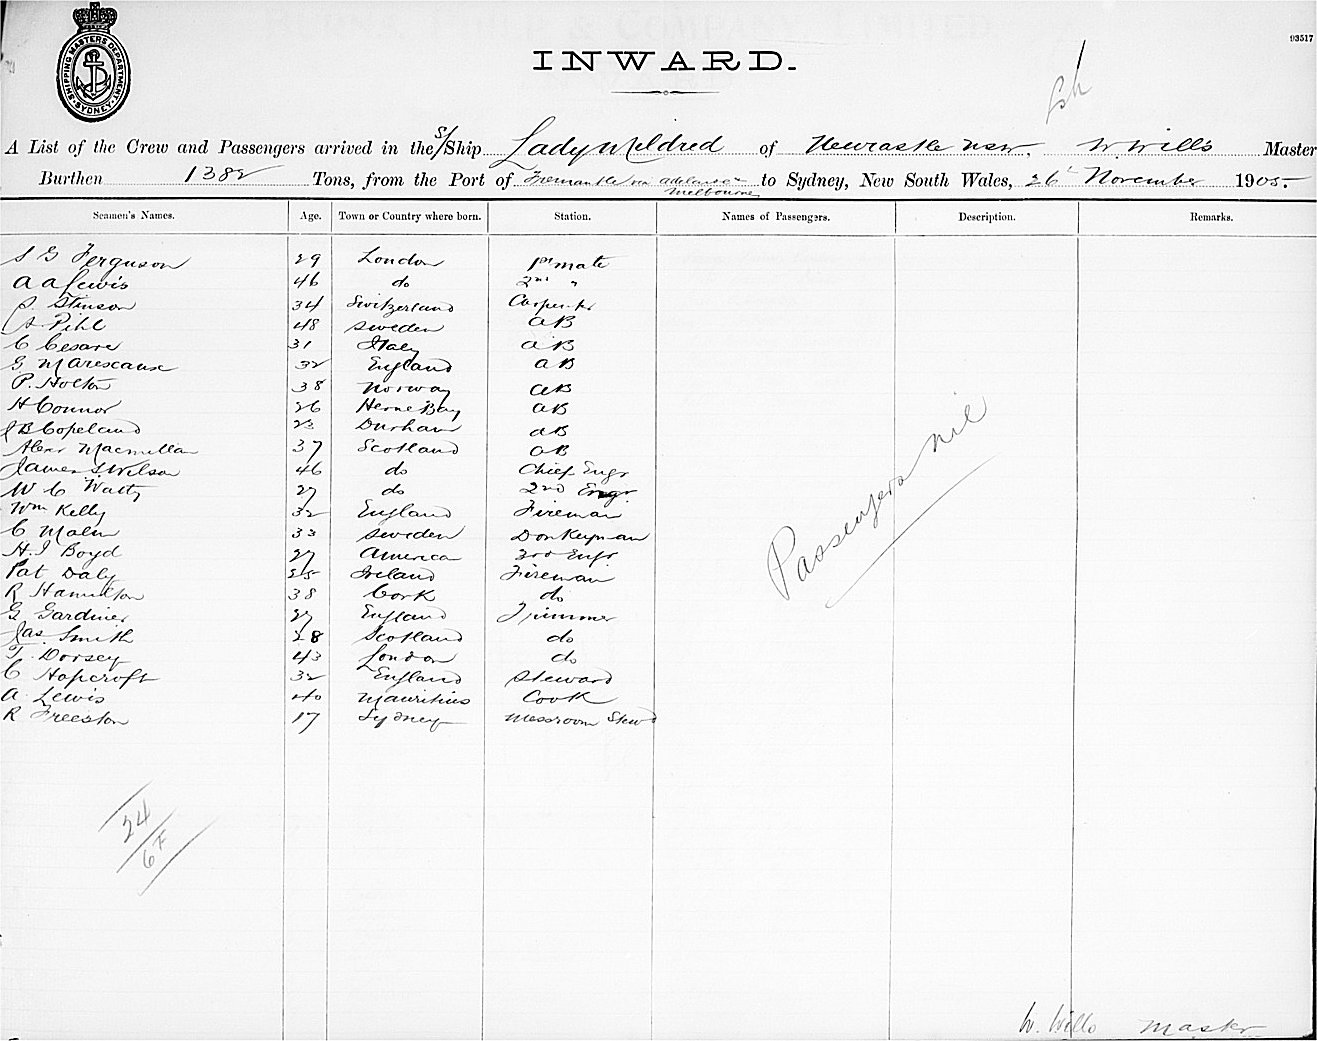 SHIPPING MASTERS DEPARTMENT SYDNEY
93517
INWARD.
A List of the Crew and Passengers arrived in the S/Ship Lady Mildred of Newcastle NSW. W. Wills Master
Burthen 1382 Tons, from the Port of Fremantle via Adelaide Melbourne to Sydney, New South Wales, 26 November 1905.
Seamen's Names. Age. Town or Country where born. Station. Names of Passengers. Description. Remarks.
S G Ferguson 29 London 1st mate
A A Lewis 46 do 2nd "
S Stinson 34 Switzerland Carpenter
A Pihl 48 Sweden AB
C Cesare 31 Italy AB
G Marescaux 32 England AB
P. Holton 38 Norway AB
H Connor 26 Herne Bay AB
J B Copeland 23 Durham AB
Alexr Macmillan 37 Scotland AB
James S Wilson 46 do Chief Engr
W C Watty 27 do 2nd Engr.
Wm Kelly 32 England Fireman
C Malm 33 Sweden Donkeyman
H. J Boyd 27 America 3rd Engr
Pat Daly 25 Ireland Fireman
R Hamilton 38 Cork do
G Gardiner 27 England Trimmer
Jas. Smith 28 Scotland do
T. Dorsey 43 London do
C Hopcroft 32 England Steward
A. Lewis 40 Mauritius Cook
R Freeston 17 Sydney Messroom Stewd
Passengers nil
24
6 F
W. Wills Master